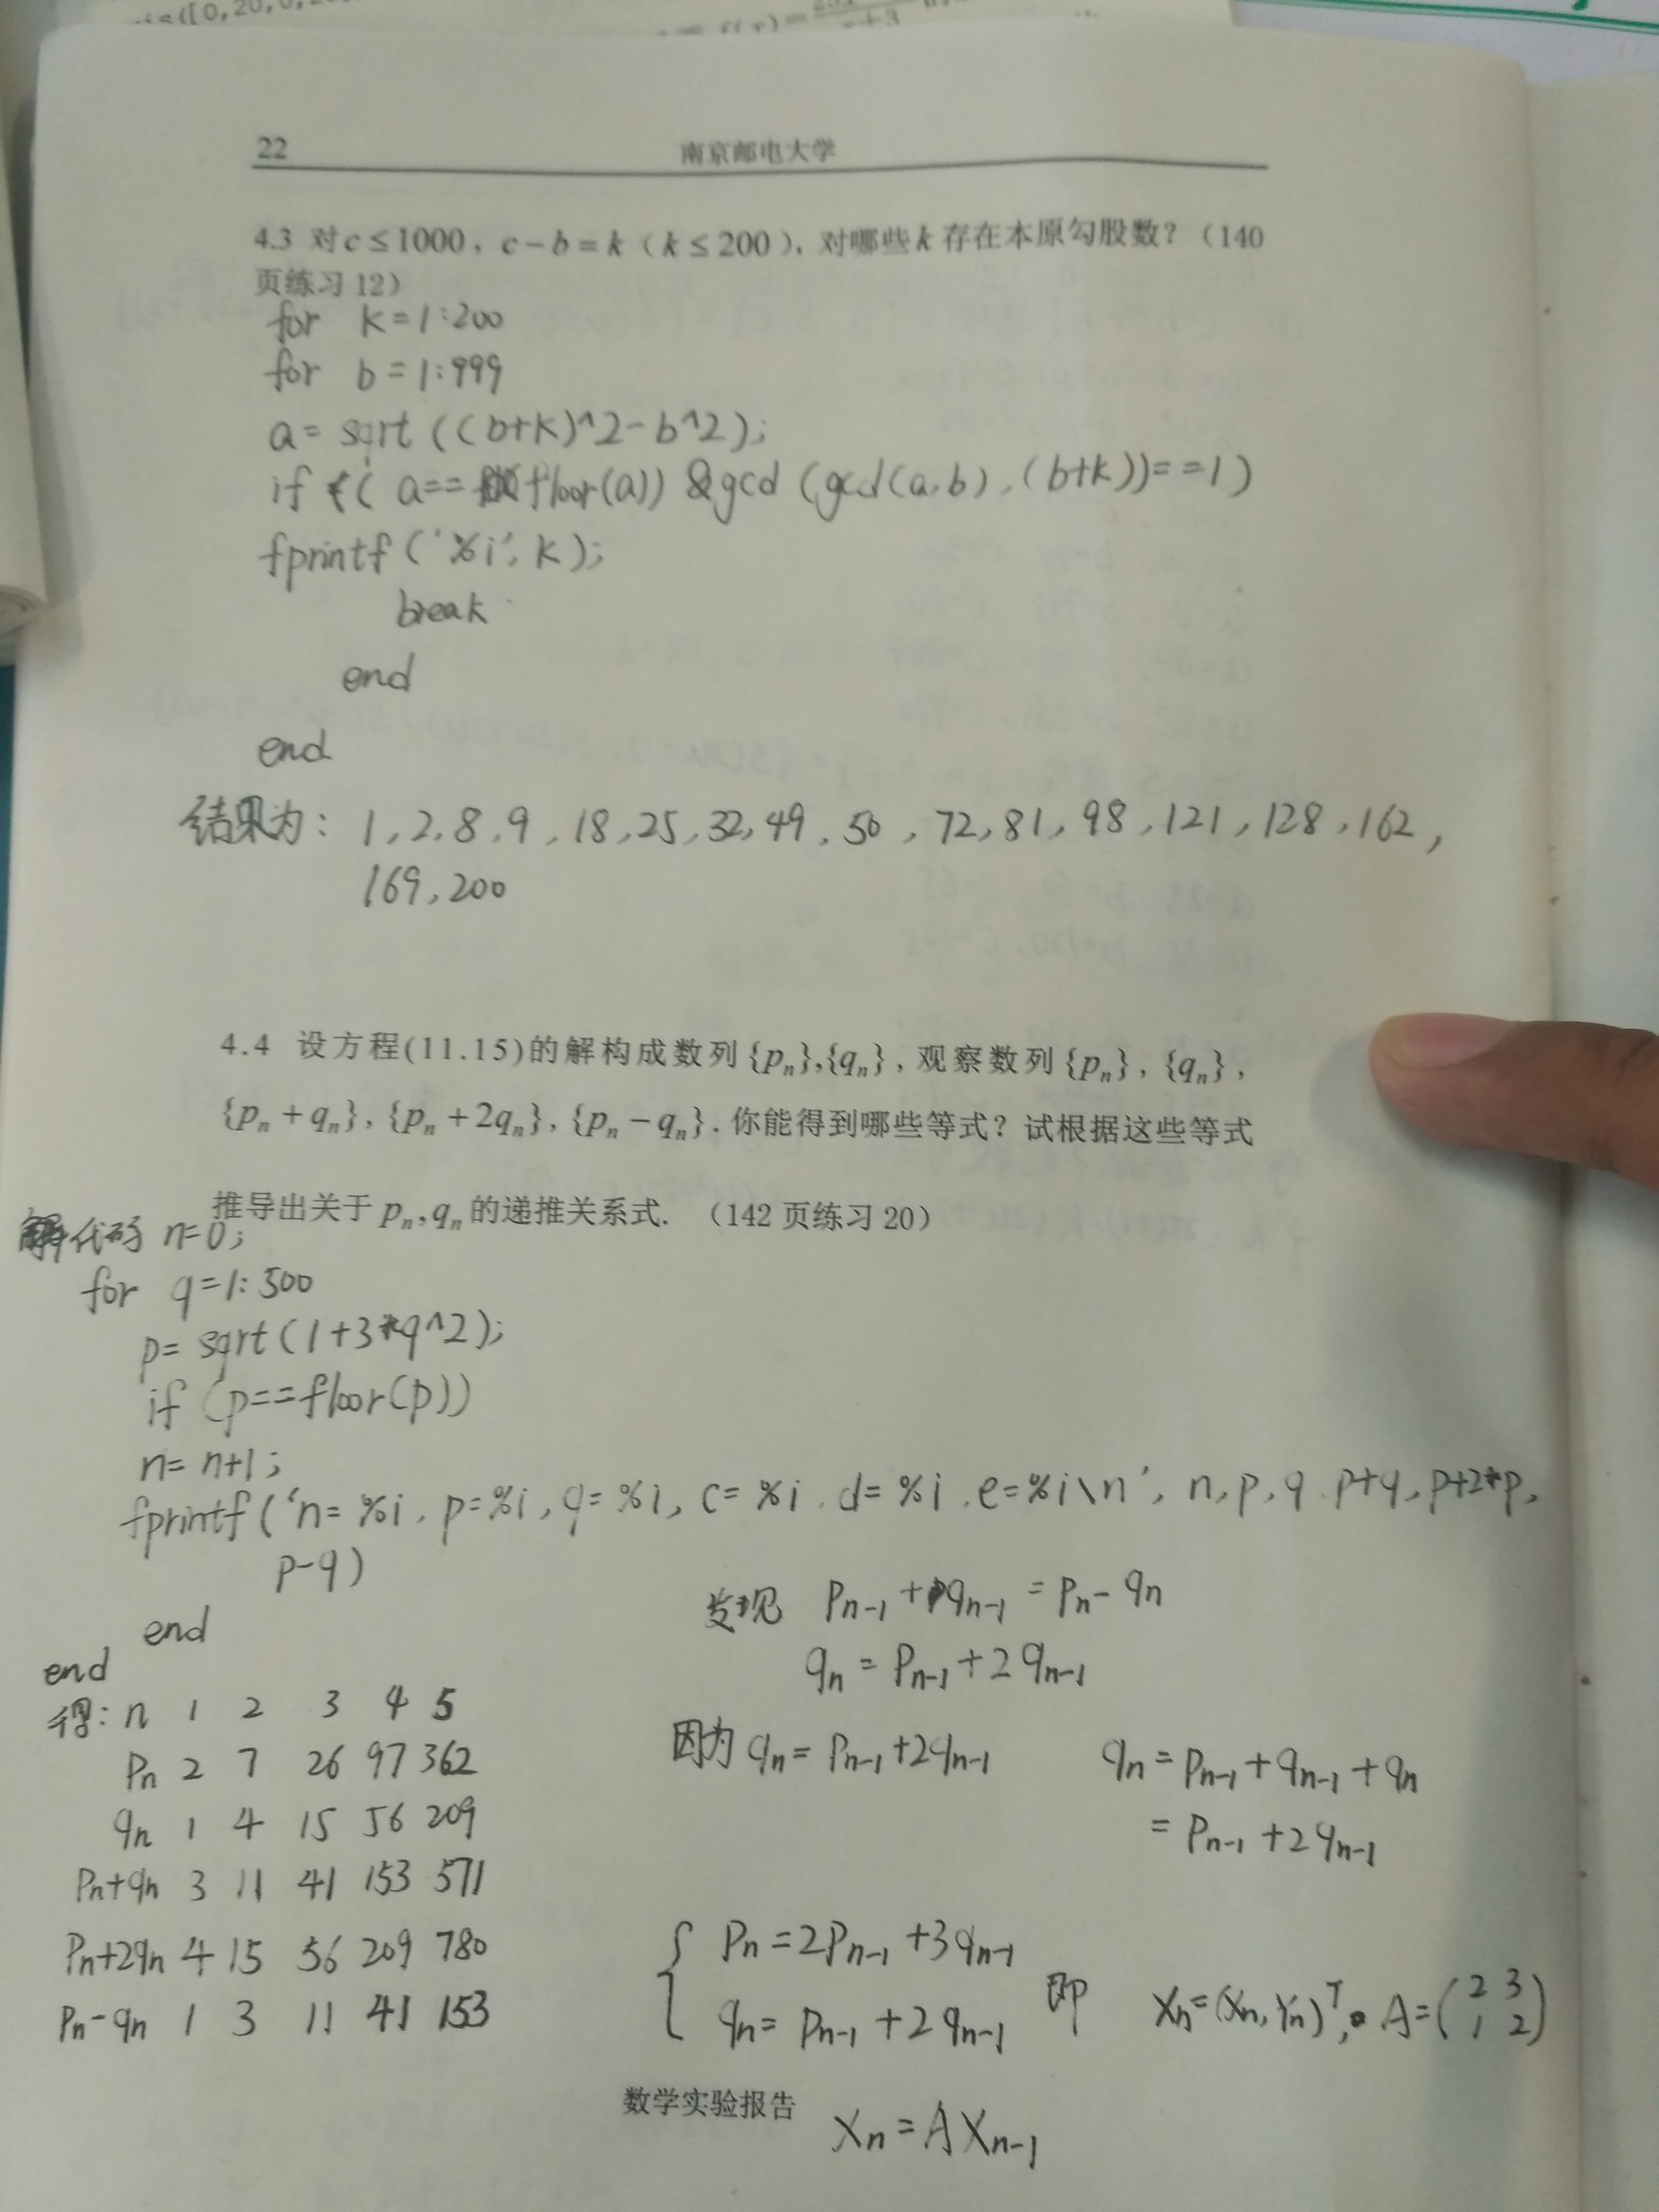 is([0,20,0,2
22 南京邮电大学
4.3 对c≤1000，c−b=k（k≤200），对哪些k存在本原勾股数？（140
页练习12）
for k=1:200
for b=1:999
a=sqrt((b+k)^2-b^2);
if((a==floor(a))&gcd(gcd(a,b),(b+k))==1)
fprintf('%i',k);
break
end
end
结果为：1,2,8,9,18,25,32,49,50,72,81,98,121,128,162,
169,200
4.4 设方程(11.15)的解构成数列{pₙ},{qₙ}，观察数列{pₙ}，{qₙ}，
{pₙ+qₙ}，{pₙ+2qₙ}，{pₙ−qₙ}．你能得到哪些等式？试根据这些等式
推导出关于pₙ,qₙ的递推关系式．（142页练习20）
代码 n=0;
for q=1:500
p=sqrt(1+3*q^2);
if(p==floor(p))
n=n+1;
fprintf('n=%i,p=%i,q=%i,c=%i,d=%i,e=%i\n',n,p,q,p+q,p+2*p,
p-q)
end
end
发现 Pₙ₋₁+qₙ₋₁=Pₙ-qₙ
qₙ=Pₙ₋₁+2qₙ₋₁
得：n 1 2 3 4 5
Pₙ 2 7 26 97 362
qₙ 1 4 15 56 209
Pₙ+qₙ 3 11 41 153 571
Pₙ+2qₙ 4 15 56 209 780
Pₙ-qₙ 1 3 11 41 153
因为 qₙ=Pₙ₋₁+2qₙ₋₁ qₙ=Pₙ₋₁+qₙ₋₁+qₙ
=Pₙ₋₁+2qₙ₋₁
{ Pₙ=2Pₙ₋₁+3qₙ₋₁
qₙ=Pₙ₋₁+2qₙ₋₁ 即 Xₙ=(Xₙ,Yₙ)ᵀ, A=(2 3
1 2)
数学实验报告
Xₙ=AXₙ₋₁